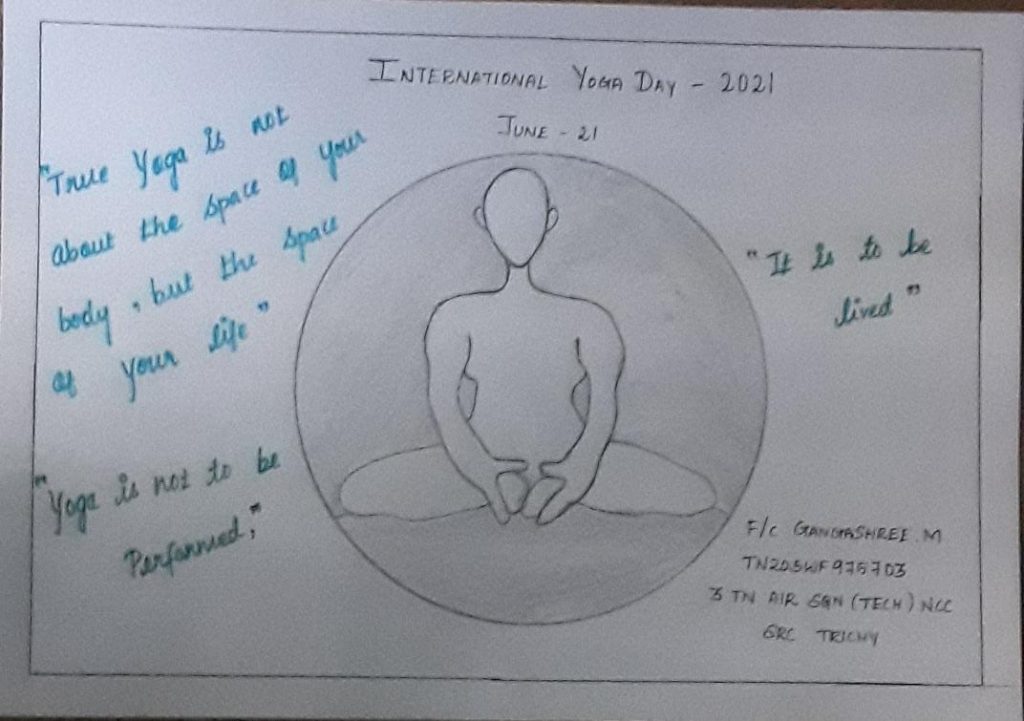 INTERNATIONAL YOGA DAY - 2021
JUNE - 21
"True Yoga is not
about the space of your
body, but the space
of your life"
"Yoga is not to be
Performed;"
"It is to be
lived"
F/C GANGASHREE.M
TN20SWF975703
3 TN AIR SQN (TECH) NCC
GRC TRICHY